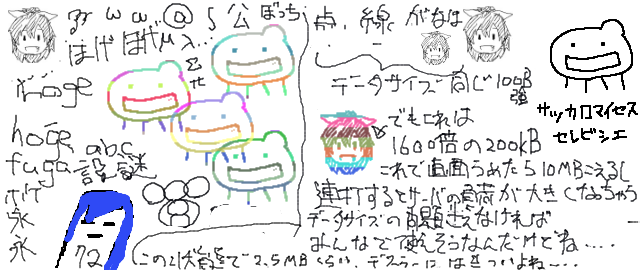 w w @ 公 ぼっち
ほげ ほげ μ λ...
Σ
π
hoge
hoge abc
fuga 設 謎
ホゲ
永
永
72
点、線 がなは
データサイズ同じ100B
強
でもこれは
1600倍の200kB
これで画面うめたら10MBこえるし
連打するとサーバの負荷が大きくなっちゃう
データサイズの問題さえなければ
みんなで使えそうなんだけどね....
この状態で2.5MBくらい
サッカロマイセス
セレビシエ